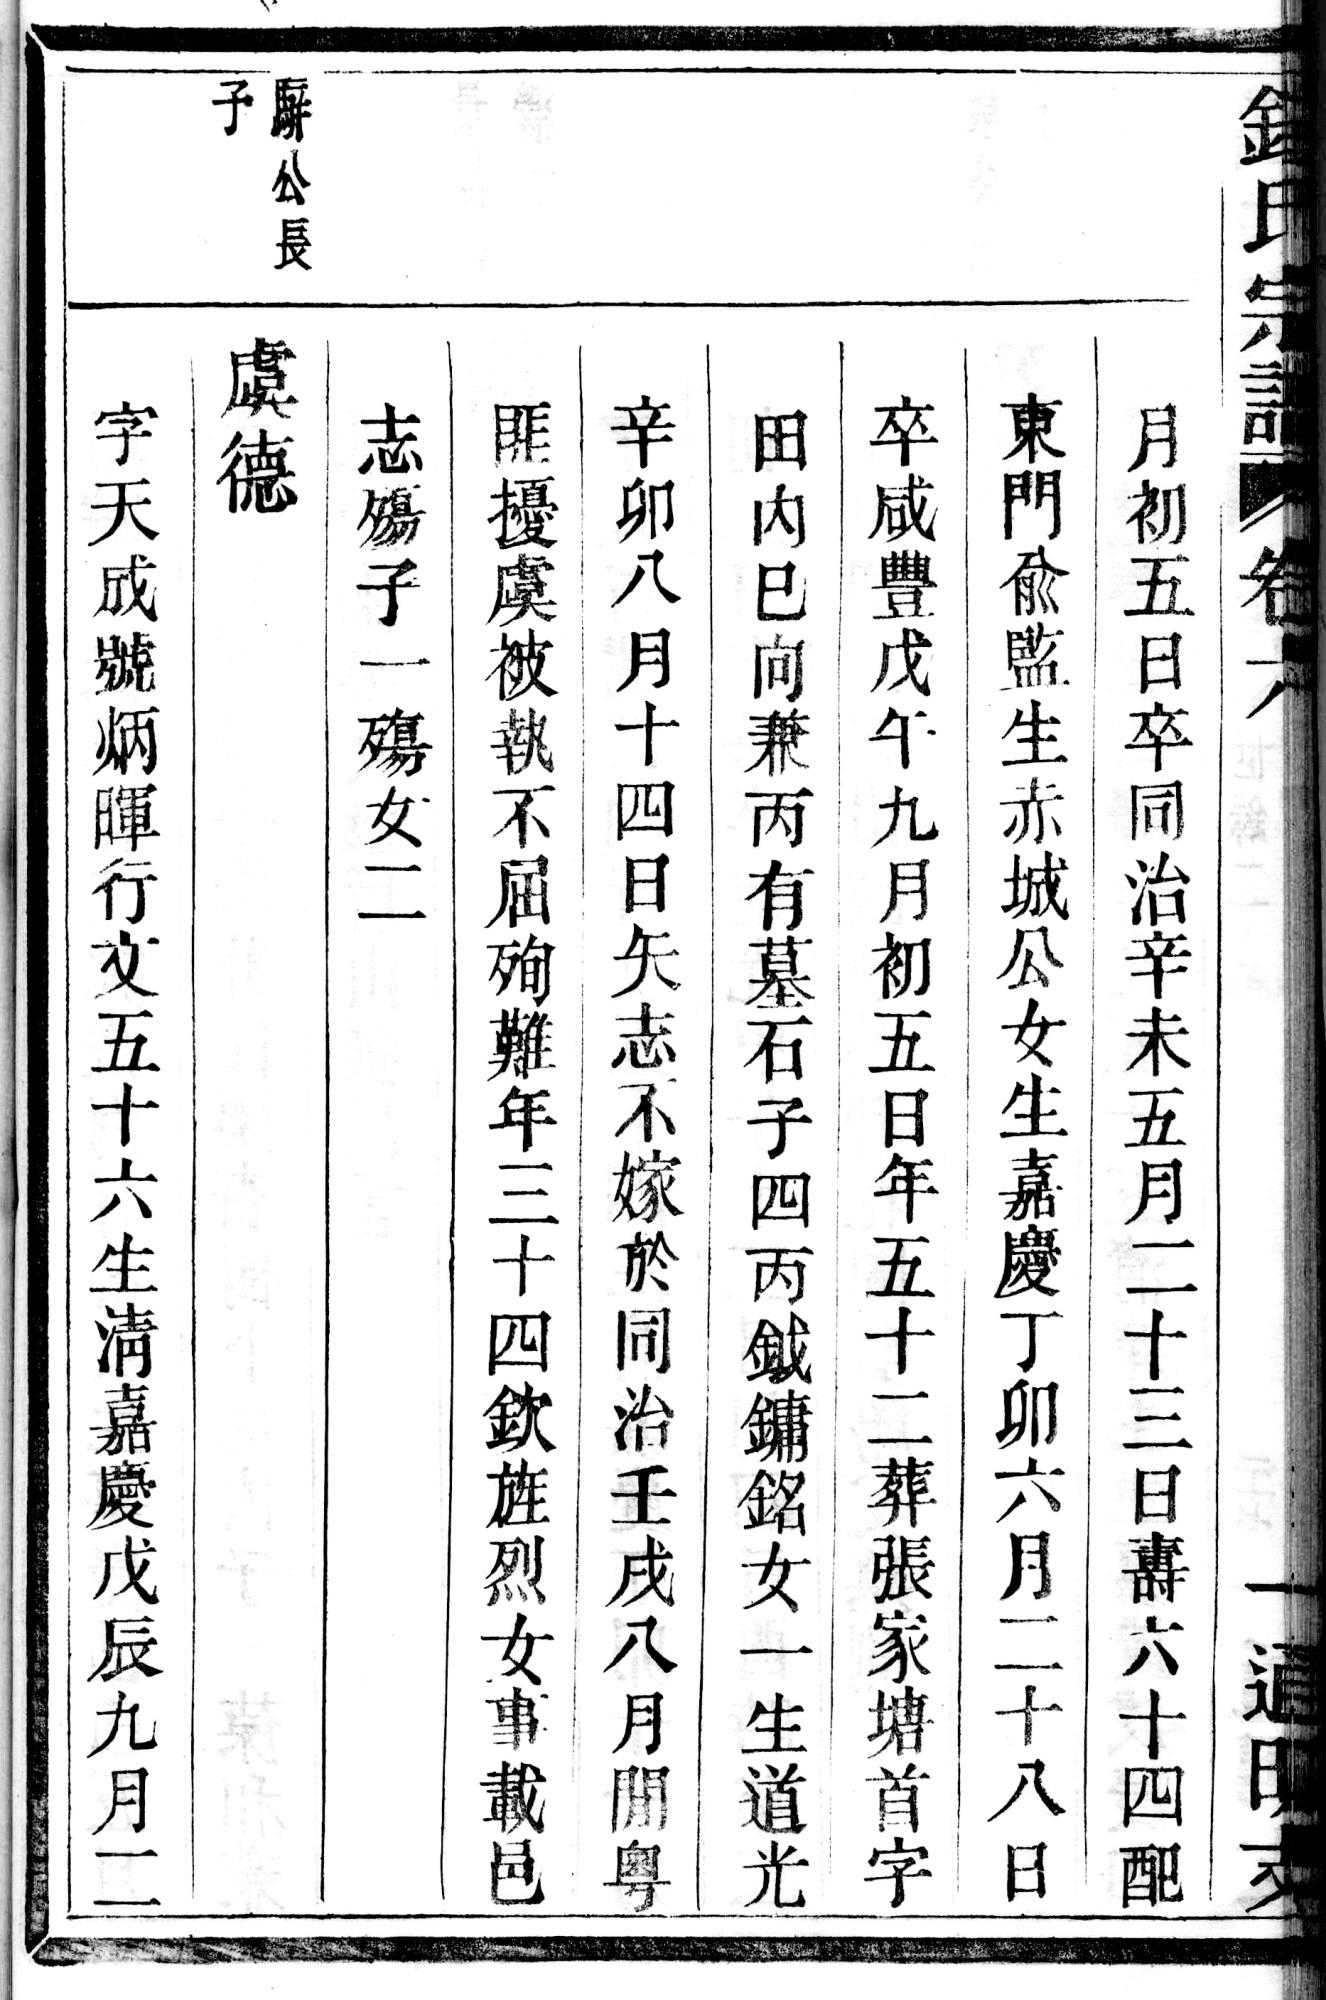 氏宗譜 卷六
月初五日卒同治辛未五月二十三日壽六十四配
東門俞監生赤城公女生嘉慶丁卯六月二十八日
卒咸豐戊午九月初五日年五十二葬張家塘首字
田內巳向兼丙有墓石子四丙鉞鏞銘女一生道光
辛卯八月十四日矢志不嫁於同治壬戌八月間粵
匪擾虞被執不屈殉難年三十四欽旌烈女事載邑
志殤子一殤女二
公長
子
虞德
字天成號炳暉行文五十六生清嘉慶戊辰九月二